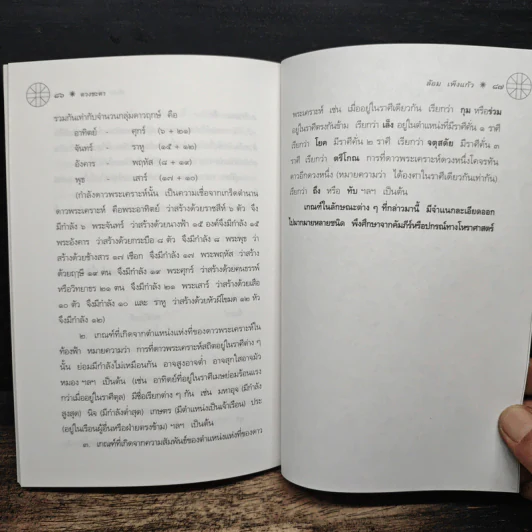 ๘๖ ดวงชะตา
รวมกันเท่ากับจำนวนกลุ่มดาวฤกษ์ คือ
อาทิตย์ - ศุกร์ (๖ + ๒๑)
จันทร์ - ราหู (๑๕ + ๑๒)
อังคาร - พฤหัส (๘ + ๑๙)
พุธ - เสาร์ (๑๗ + ๑๐)
(กำลังดาวพระเคราะห์นั้น เป็นความเชื่อจากเกร็ดตำนาน
ดาวพระเคราะห์ คือพระอาทิตย์ ว่าสร้างด้วยราชสีห์ ๖ ตัว จึง
มีกำลัง ๖ พระจันทร์ ว่าสร้างด้วยนางฟ้า ๑๕ องค์จึงมีกำลัง ๑๕
พระอังคาร ว่าสร้างด้วยกระบือ ๘ ตัว จึงมีกำลัง ๘ พระพุธ ว่า
สร้างด้วยช้างสาร ๑๗ เชือก จึงมีกำลัง ๑๗ พระพฤหัส ว่าสร้าง
ด้วยฤๅษี ๑๙ ตน จึงมีกำลัง ๑๙ พระศุกร์ ว่าสร้างด้วยคนธรรพ์
หรือวิทยาธร ๒๑ ตน จึงมีกำลัง ๒๑ พระเสาร์ ว่าสร้างด้วยเสือ
๑๐ ตัว จึงมีกำลัง ๑๐ และ ราหู ว่าสร้างด้วยหัวผีโขมด ๑๒ หัว
จึงมีกำลัง ๑๒)
๒. เกณฑ์ที่เกิดจากตำแหน่งแห่งที่ของดาวพระเคราะห์ใน
ท้องฟ้า หมายความว่า การที่ดาวพระเคราะห์สถิตอยู่ในราศีต่าง ๆ
นั้น ย่อมมีกำลังไม่เหมือนกัน อาจสูงอาจต่ำ อาจสุกใสอาจมัว
หมอง ฯลฯ เป็นต้น (เช่น อาทิตย์ที่อยู่ในราศีเมษย่อมร้อนแรง
กว่าเมื่ออยู่ในราศีตุล) มีชื่อเรียกต่าง ๆ กัน เช่น มหาอุจ (มีกำลัง
สูงสุด) นิจ (มีกำลังต่ำสุด) เกษตร (มีตำแหน่งเป็นเจ้าเรือน) ประ
(อยู่ในเรือนผู้อื่นหรือฝ่ายตรงข้าม) ฯลฯ เป็นต้น
๓. เกณฑ์ที่เกิดจากความสัมพันธ์ของตำแหน่งแห่งที่ของดาว
ล้อม เพ็งแก้ว ๘๗
พระเคราะห์ เช่น เมื่ออยู่ในราศีเดียวกัน เรียกว่า กุม หรือร่วม
อยู่ในราศีตรงกันข้าม เรียกว่า เล็ง อยู่ในตำแหน่งที่มีราศีคั่น ๑ ราศี
เรียกว่า โยค มีราศีคั่น ๒ ราศี เรียกว่า จตุสดัย มีราศีคั่น ๓
ราศี เรียกว่า ตรีโกณ การที่ดาวพระเคราะห์ดวงหนึ่งโคจรทับ
ดาวอีกดวงหนึ่ง (หมายความว่า ได้องศาในราศีเดียวกันเท่ากัน)
เรียกว่า ถึง หรือ ทับ ฯลฯ เป็นต้น
เกณฑ์ในลักษณะต่าง ๆ ที่กล่าวมานี้ มีจำแนกละเอียดออก
ไปมากมายหลายชนิด พึงศึกษาจากคัมภีร์หรือปกรณ์ทางโหราศาสตร์